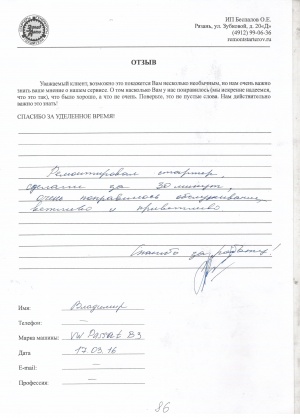 ИП Беспалов О.Е.
Рязань, ул. Зубковой, д. 20«Д»
(4912) 99-06-36
remontstarterov.ru
ОТЗЫВ
Уважаемый клиент, возможно это покажется Вам несколько необычным, но нам очень важно
знать ваше мнение о нашем сервисе. О том насколько Вам у нас понравилось (мы искренне надеемся,
что это так), что было хорошо, а что не очень. Поверьте, это не пустые слова. Нам действительно
важно это знать!
СПАСИБО ЗА УДЕЛЕННОЕ ВРЕМЯ!
Ремонтировал стартер,
сделали за 30 минут,
очень понравилось обслуживание,
вежливо и приветливо
Спасибо за работу!
Имя: Владимир
Телефон: —
Марка машины: VW Passat B3
Дата 17.03.16
E-mail: —
Профессия: —
86